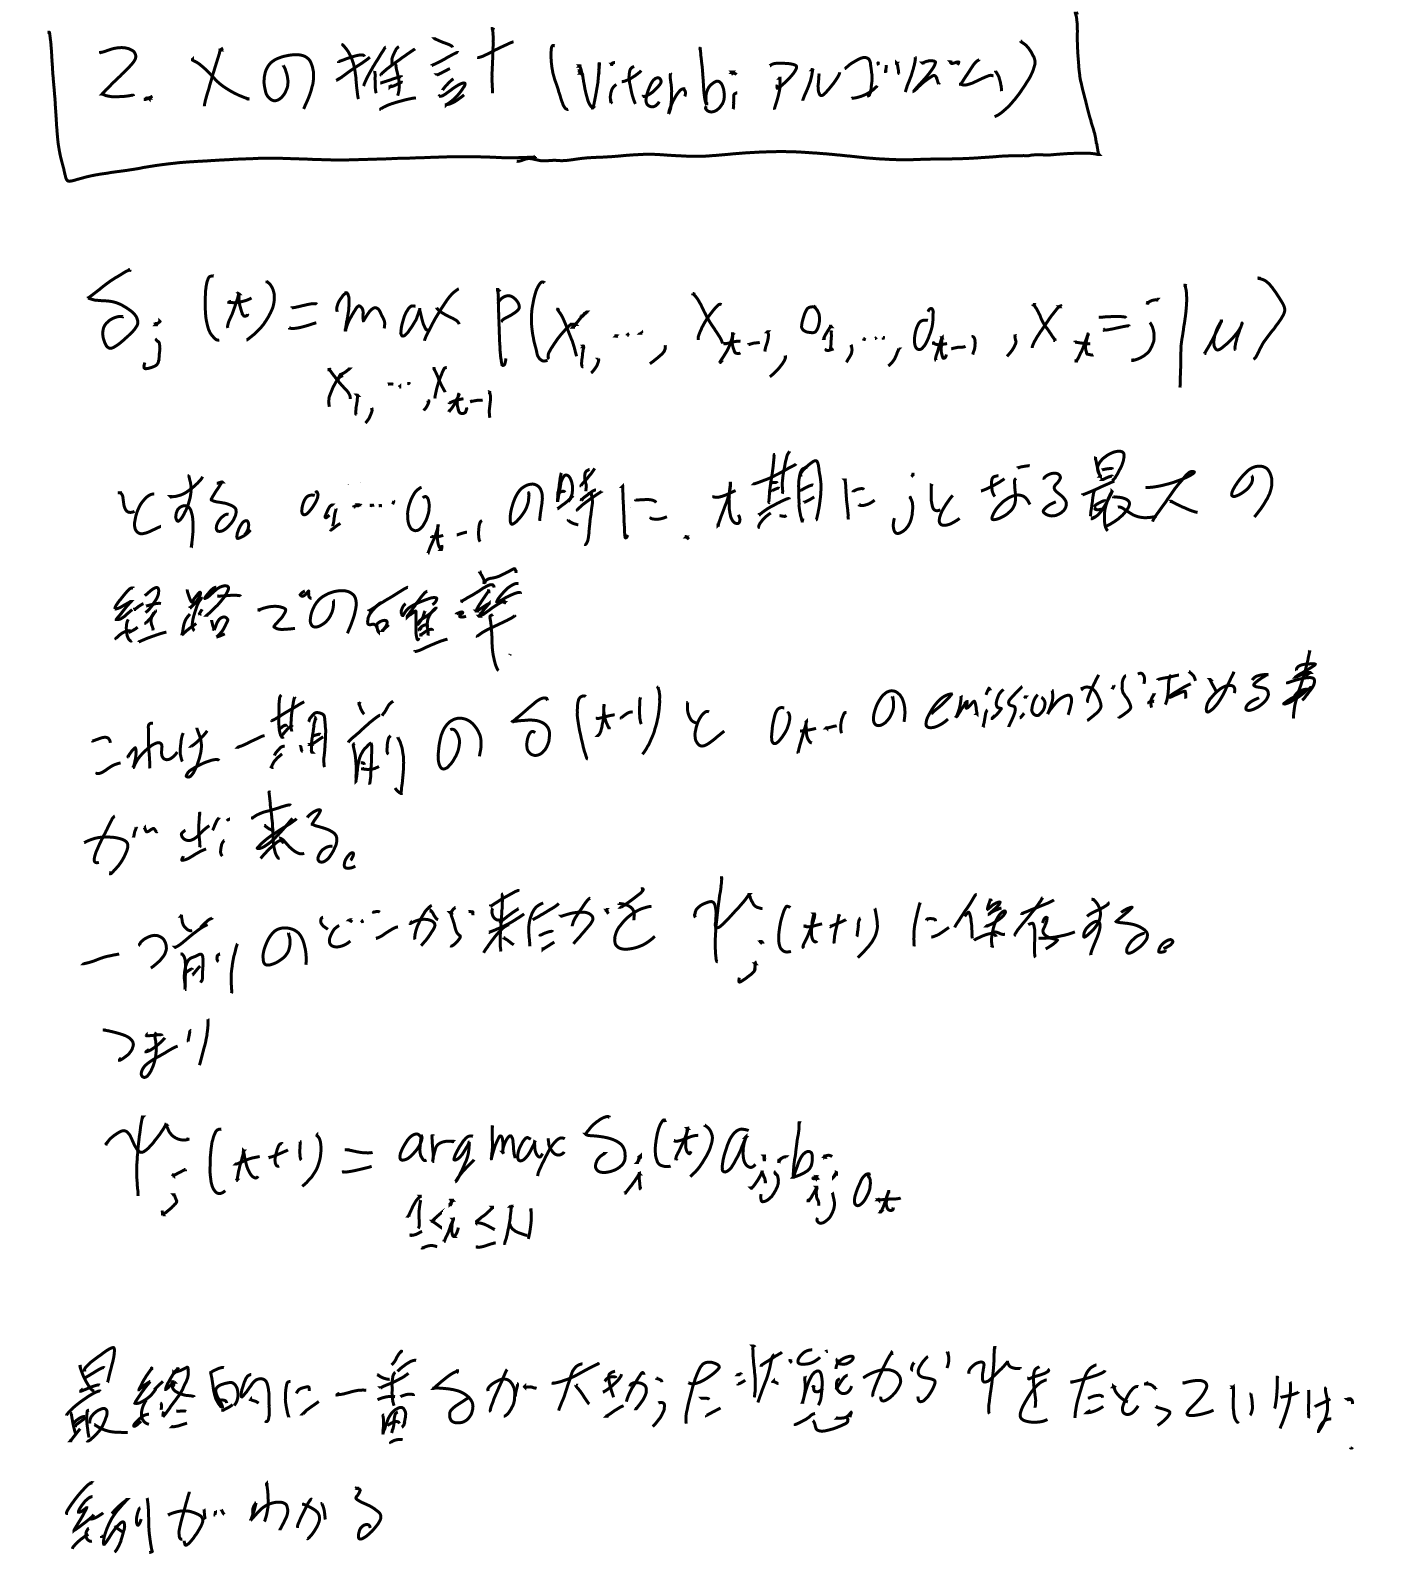 2. Xの推計 (Viterbi アルゴリズム)
δ_j (t) = max_{X_1, …, X_{t-1}} P(X_1, …, X_{t-1}, o_1, …, o_{t-1}, X_t = j | μ)
とする。 o_1 … o_{t-1} の時に、t期に j となる最大の
経路での確率
これは一期前の δ(t-1) と o_{t-1} の emissionから求める事
が出来る。
一つ前のどこから来たかを ψ_j (t+1) に保存する。
つまり
ψ_j (t+1) = arg max_{1≤i≤N} δ_i (t) a_{ij} b_{ij o_t}
最終的に一番δが大きかった状態からψをたどっていけば
系列がわかる